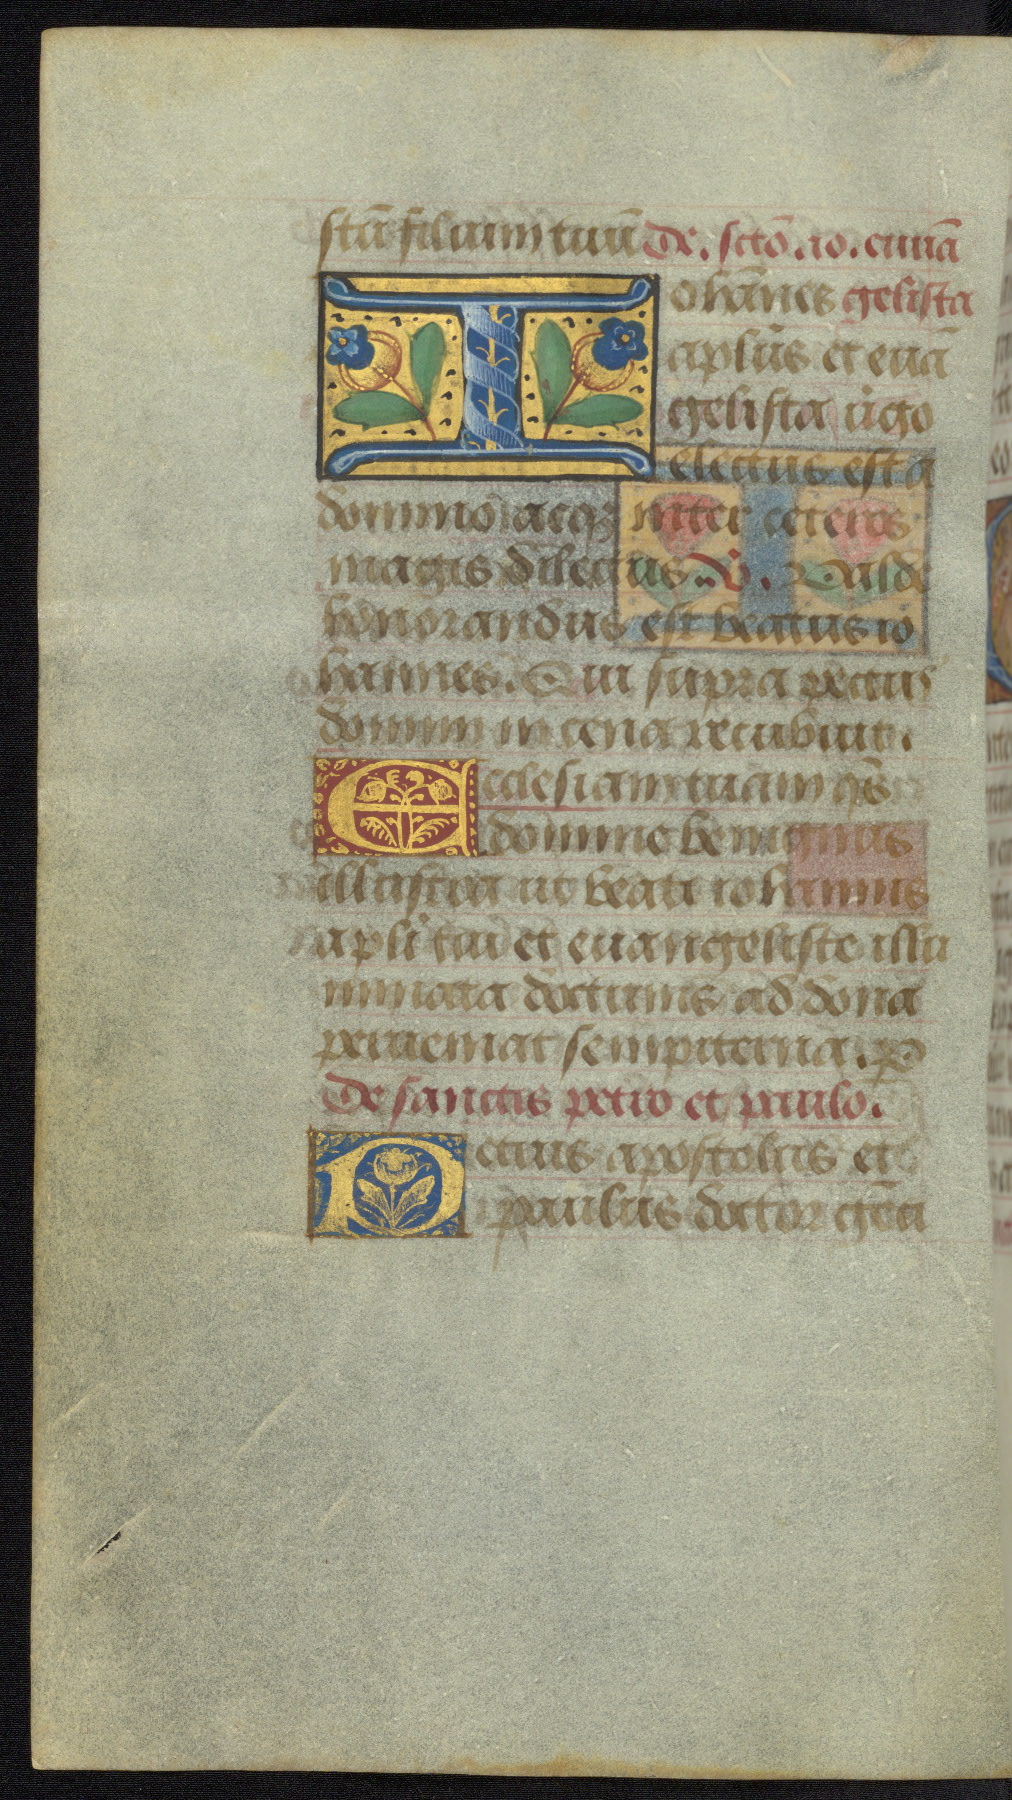 stā filium tuū De. sctō. io. euuā
Iohānes gelista
aplūs et euā
gelista ūgo
electus est a
domino atqȝ inter ceteros
magis dilectus. V̄. Valde
honorandus est beatus io
hannes. Qui supra pectus
domini in cena recubuit.
Ecclesiam tuam qs̄
domine benignus
illustra ut beati iohannis
apli tui et euangeliste illu
minata doctrinis ad dona
perueniat sempiterna. P
De sanctis petro et paulo.
Petrus apostolus et
paulus doctor gēti